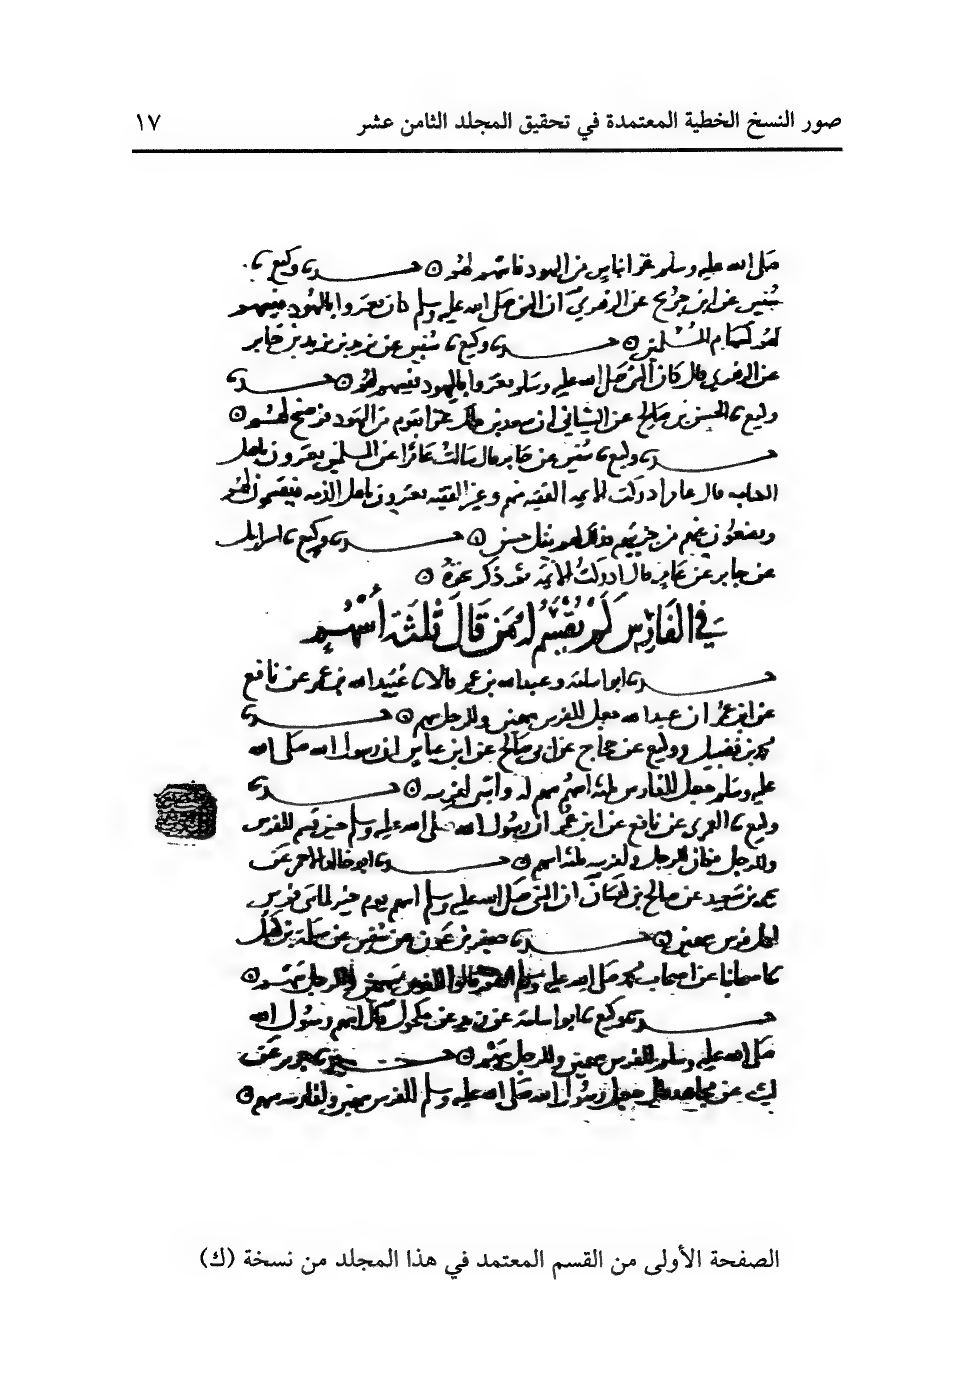 صور النسخ الخطية المعتمدة في تحقيق المجلد الثامن عشر ١٧
صلى الله عليه وسلم غزا بناس من اليهود فاسهم لهم حدثنا وكيع نا
سفين عن ابن جريج عن الزهري ان النبي صلى الله عليه وسلم كان يغزوا باليهود فيسهم
لهم كسهام المسلمين حدثنا وكيع نا سفين عن يزيد بن يزيد بن جابر
عن الزهري قال كان النبي صلى الله عليه وسلم يغزوا باليهود فيسهم لهم حدثنا
وكيع نا الحسن بن صالح عن الشيباني ان سعد بن مالك غزا بقوم من اليهود فرضخ لهم
حدثنا وكيع نا سفين عن جابر قال سالت عامرا عن المسلمين يغزون باهل
الكتاب قال عامر ادركت الايمة الفقيه منهم وغير الفقيه يغزون باهل الذمة فيقسمون لهم
ويضعون عنهم من جزيتهم فذلك لهم نفل حسن حدثنا وكيع نا اسرايل
عن جابر عن عامر قال ادركت الايمة ثم ذكر نحوه
في الفارس كم يقسم له من قال ثلثة أسهم
حدثنا ابو اسامة وعبد الله بن نمير قالا نا عبيد الله بن عمر عن نافع
عن ابن عمر ان رسول الله جعل للفرس سهمين وللرجل سهم حدثنا
محمد بن فضيل ووكيع عن حجاج عن ابي صالح عن ابن عباس ان رسول الله صلى الله
عليه وسلم جعل للفارس ثلثة اسهم سهم له واثنين لفرسه حدثنا
وكيع نا العمري عن نافع عن ابن عمر ان رسول الله صلى الله عليه وسلم حين قسم للفرس
وللرجل فكان للرجل ولفرسه ثلثة اسهم حدثنا ابو خالد الاحمر عن
يحيى بن سعيد عن صالح بن كيسان ان النبي صلى الله عليه وسلم اسهم يوم خيبر لمايتي فرس
لكل فرس سهمين حدثنا جعفر بن عون عن سفين عن سلمة بن كهيل
نا اصحابنا عن اصحاب محمد صلى الله عليه وسلم انهم قالوا للفرس سهمين وللرجل سهم
حدثنا وكيع نا ابو اسامة عن مكحول قال اسهم رسول الله
صلى الله عليه وسلم للفرس سهمين وللرجل سهم حدثنا جرير عن
ليث عن مجاهد قال جعل رسول الله صلى الله عليه وسلم للفرس سهمين ولفارسه سهم
الصفحة الأولى من القسم المعتمد في هذا المجلد من نسخة (ك)